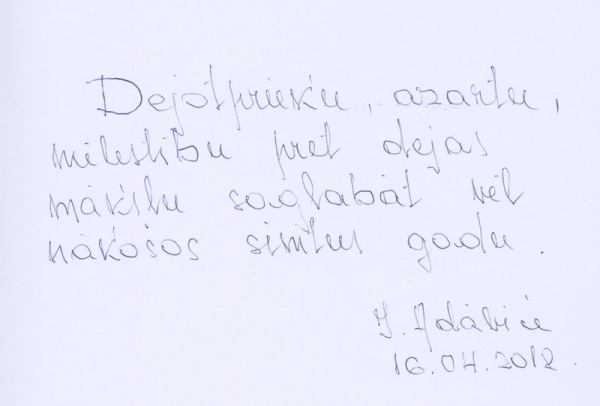 Dejotprieku, azartu,
mīlestību pret dejas
mākslu saglabāt vēl
nākošos simtus gadu.
I. Adāviča
16.04.2012.